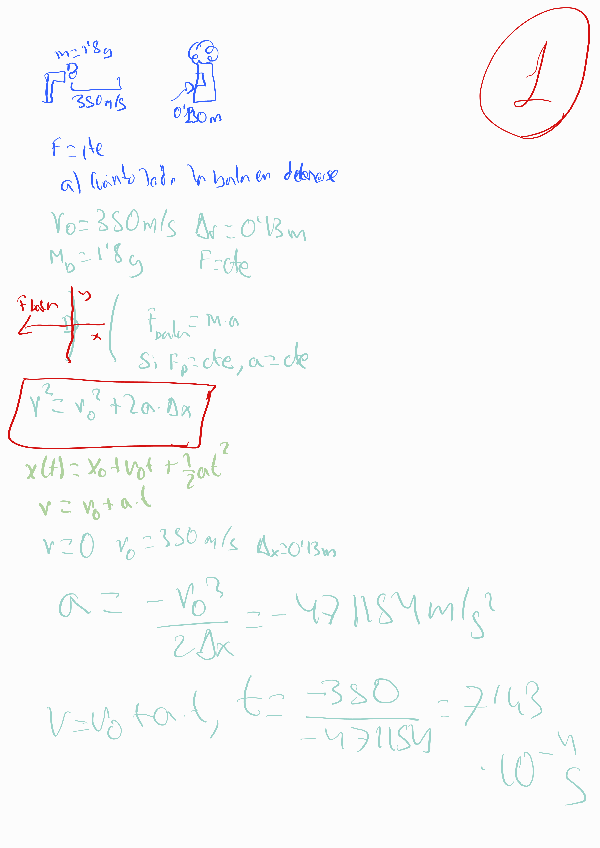 1
m=1'8g
350m/s
0'130m
F=cte
a) Cuánto tarda la bala en detenerse
V₀=350m/s Δx=0'13m
M_b=1'8g F=cte
F_bala y
x
F_bala=m·a
Si F_b=cte, a=cte
v²=v₀²+2a·Δx
x(t)=x₀+v₀t+½at²
v=v₀+a·t
v=0 v₀=350m/s Δx=0'13m
a = -v₀²/2Δx = -471154m/s²
v=v₀+a·t, t=-350/-471154=7'43
·10⁻⁴s